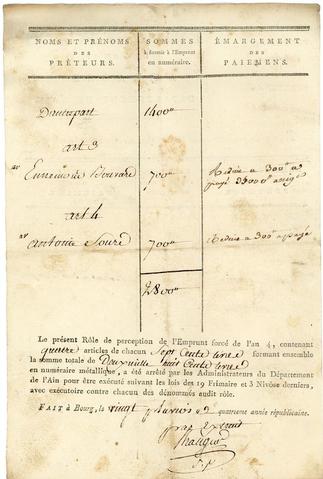 NOMS ET PRÉNOMS
DES
PRÊTEURS.
SOMMES
à fournir à l'Emprunt
en numéraire.
ÉMARGEMENT
DES
PAIEMENS.
D'autrepart 1400
art 3
700
Reduit a 300
art 4
antoine 700
Reduit a 300
2800
Le présent Rôle de perception de l'Emprunt forcé de l'an 4, contenant
quatre articles de chacun Sept Cents livres formant ensemble
la somme totale de Deux mille huit Cents livres
en numéraire métallique, a été arrêté par les Administrateurs du Département
de l'Ain pour être exécuté suivant les lois des 19 Frimaire et 3 Nivôse derniers,
avec exécutoire contre chacun des dénommés audit rôle.
FAIT à Bourg, le vingt quatreme année républicaine.